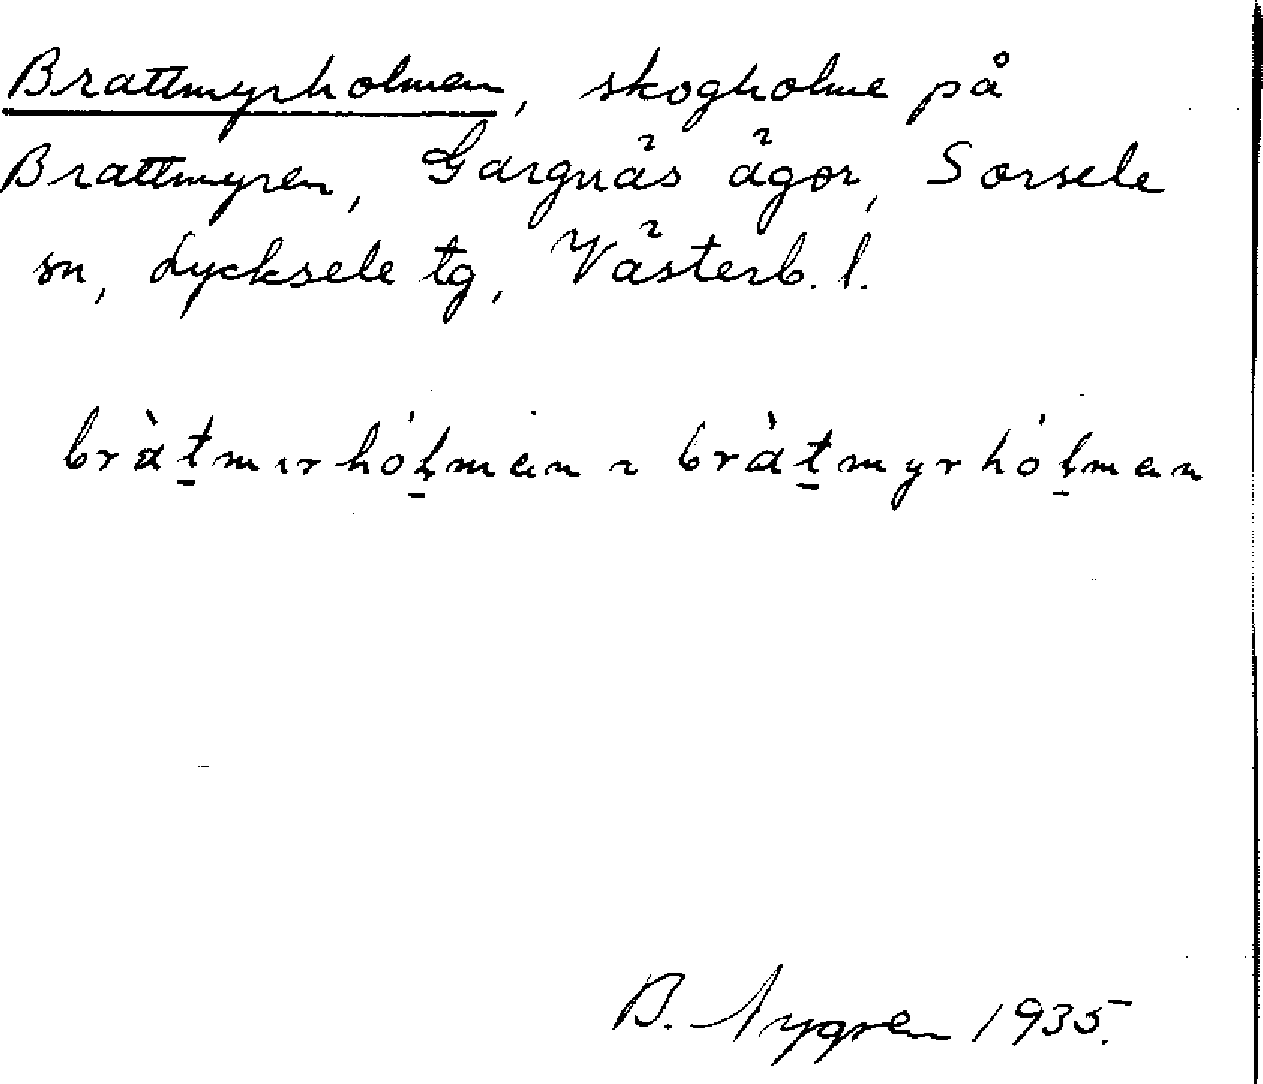 Brattmyrholmen, skogholme på
Brattmyren, Gargnäs ägor, Sorsele
sn, Lycksele tg, Västerb. l.
bràt̲mırhól̲man ~ bràt̲myrhól̲man
B. Nygren 1935.